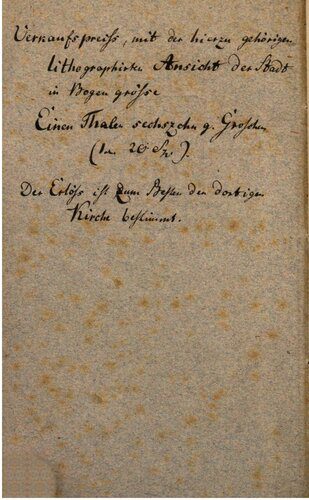 Verkaufspreiss, mit der hierzu gehörigen
lithographirten Ansicht der Stadt
in Bogen grösse
Einen Thaler sechszehn g. Groschen
(1 20 Sg.).
Der Erlös ist zum Besten der dortigen
Kirche bestimmt.